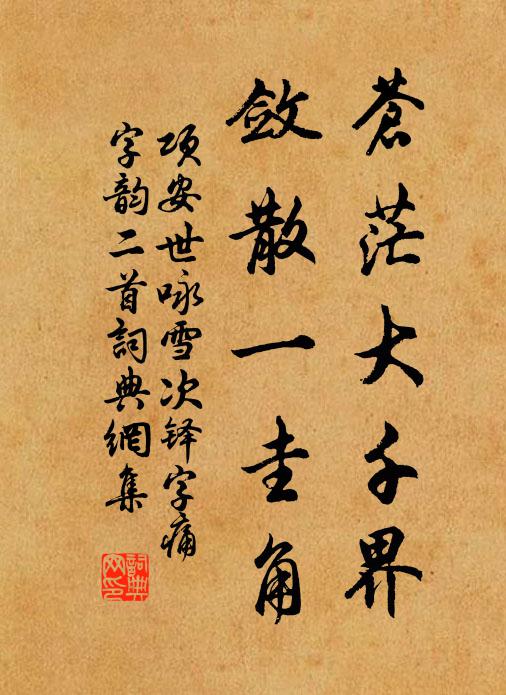 蒼茫大千界
斂散一圭角
项安世咏雪次铎字痛
字韵二首詞典網集
詞典
网印